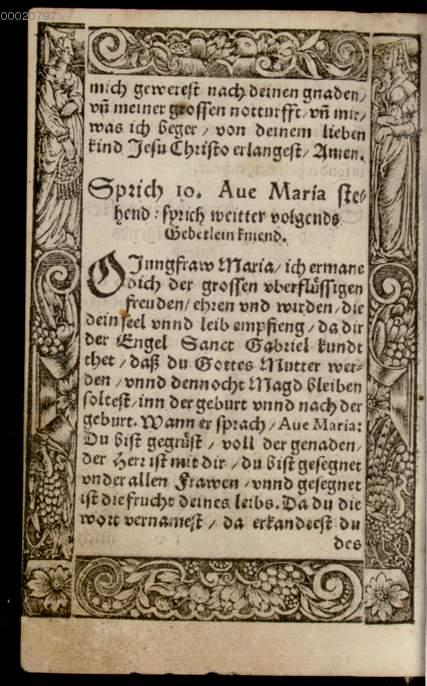 00020797
mich gewerest nach deinen gnaden/
vñ meiner grossen notturfft/ vñ mir/
was ich beger / von deinem lieben
kind Jesu Christo erlangest/ Amen.
Sprich 10. Aue Maria ste-
hend: sprich weitter volgends
Gebetlein kniend.
O Jungfraw Maria/ ich ermane
dich der grossen vberflüssigen
freuden/ ehren vnd wirden/ die
dein seel vnnd leib empfieng/ da dir
der Engel Sanct Gabriel kundt
thet / daß du Gottes Mutter wer-
den / vnnd dennocht Magd bleiben
soltest/ inn der geburt vnnd nach der
geburt. Wann er sprach/ Aue Maria:
Du bist gegrüst / voll der genaden/
der Herr ist mit dir / du bist gesegnet
vnder allen Frawen / vnnd gesegnet
ist die frucht deines leibs. Da du die
wort vernamest / da erkandtest du
des